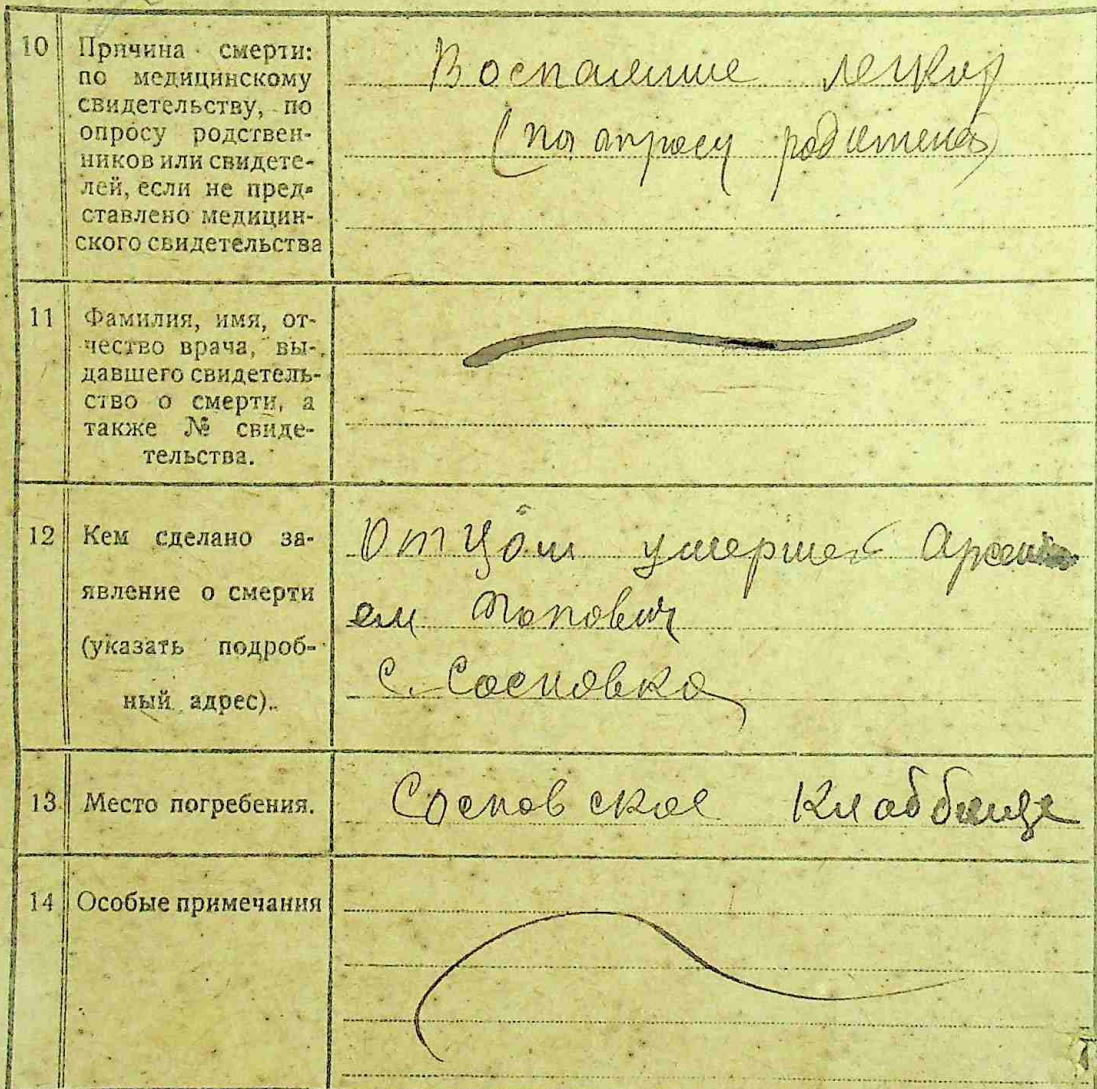 10 Причина смерти:
по медицинскому
свидетельству, по
опросу родствен-
ников или свидете-
лей, если не пред-
ставлено медицин-
ского свидетельства
Воспаление легких
(по опросу родителей)
11 Фамилия, имя, от-
чество врача, вы-
давшего свидетель-
ство о смерти, а
также № свиде-
тельства.
12 Кем сделано за-
явление о смерти
(указать подроб-
ный адрес).
Отцом умершей Арсени
ем Попович
с. Сосновка
13 Место погребения.
Сосновское Кладбище
14 Особые примечания